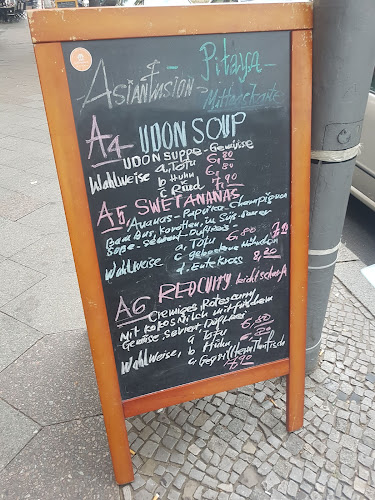 AsianFusion - Pitaya -
Mittagskarte
A4 UDON SOUP
UDON SUPPE - Gemüse
Wahlweise a, Tofu 6,80
b Huhn 6,80
c Rind 7,90
A5 SWEET ANANAS
Ananas - Paprika - Champignon
Bambus, Karotten, in Süß-Saurer
Soße - serviert - Duftreis -
a Tofu 6,80
Wahlweise c gebackene Hähnchen
d. Ente kross 8,20
A6 RED CURRY leicht scharf
Cremiges, Rotes curry
mit Kokosmilch mit frischem
Gemüse, serviert, Duftreis
Wahlweise, a Tofu 6,80
b Huhn
c Gegrilltem Thunfisch